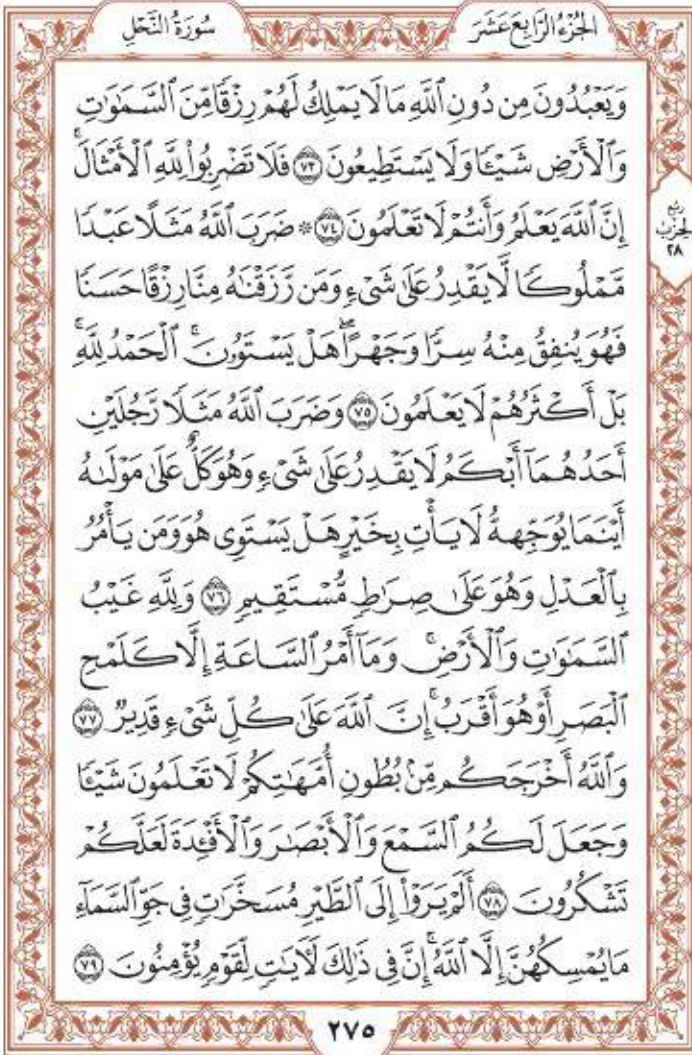 الجُزْءُ الرَّابِعَ عَشَرَ
سُورَةُ النَّحْلِ
وَيَعْبُدُونَ مِن دُونِ ٱللَّهِ مَا لَا يَمْلِكُ لَهُمْ رِزْقًا مِّنَ ٱلسَّمَٰوَٰتِ
وَٱلْأَرْضِ شَيْـًٔا وَلَا يَسْتَطِيعُونَ ٧٣ فَلَا تَضْرِبُوا۟ لِلَّهِ ٱلْأَمْثَالَ ۚ
إِنَّ ٱللَّهَ يَعْلَمُ وَأَنتُمْ لَا تَعْلَمُونَ ٧٤ ۞ ضَرَبَ ٱللَّهُ مَثَلًا عَبْدًا
مَّمْلُوكًا لَّا يَقْدِرُ عَلَىٰ شَىْءٍ وَمَن رَّزَقْنَٰهُ مِنَّا رِزْقًا حَسَنًا
فَهُوَ يُنفِقُ مِنْهُ سِرًّا وَجَهْرًا ۖ هَلْ يَسْتَوُۥنَ ۚ ٱلْحَمْدُ لِلَّهِ ۚ
بَلْ أَكْثَرُهُمْ لَا يَعْلَمُونَ ٧٥ وَضَرَبَ ٱللَّهُ مَثَلًا رَّجُلَيْنِ
أَحَدُهُمَآ أَبْكَمُ لَا يَقْدِرُ عَلَىٰ شَىْءٍ وَهُوَ كَلٌّ عَلَىٰ مَوْلَىٰهُ
أَيْنَمَا يُوَجِّههُّ لَا يَأْتِ بِخَيْرٍ ۖ هَلْ يَسْتَوِى هُوَ وَمَن يَأْمُرُ
بِٱلْعَدْلِ ۙ وَهُوَ عَلَىٰ صِرَٰطٍ مُّسْتَقِيمٍ ٧٦ وَلِلَّهِ غَيْبُ
ٱلسَّمَٰوَٰتِ وَٱلْأَرْضِ ۚ وَمَآ أَمْرُ ٱلسَّاعَةِ إِلَّا كَلَمْحِ
ٱلْبَصَرِ أَوْ هُوَ أَقْرَبُ ۚ إِنَّ ٱللَّهَ عَلَىٰ كُلِّ شَىْءٍ قَدِيرٌ ٧٧
وَٱللَّهُ أَخْرَجَكُم مِّنۢ بُطُونِ أُمَّهَٰتِكُمْ لَا تَعْلَمُونَ شَيْـًٔا
وَجَعَلَ لَكُمُ ٱلسَّمْعَ وَٱلْأَبْصَٰرَ وَٱلْأَفْـِٔدَةَ ۙ لَعَلَّكُمْ
تَشْكُرُونَ ٧٨ أَلَمْ يَرَوْا۟ إِلَى ٱلطَّيْرِ مُسَخَّرَٰتٍ فِى جَوِّ ٱلسَّمَآءِ
مَا يُمْسِكُهُنَّ إِلَّا ٱللَّهُ ۗ إِنَّ فِى ذَٰلِكَ لَـَٔايَٰتٍ لِّقَوْمٍ يُؤْمِنُونَ ٧٩
ربع
الحزب
٢٨
٢٧٥